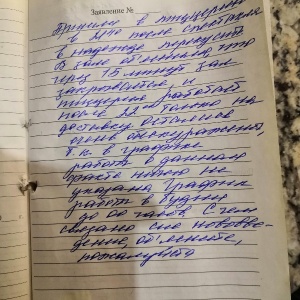 Заявление №
Пришли в пиццерию
в 21:40 после спектакля
в надежде перекусить
В зале объявили, что
через 15 минут зал
закрывается и
пиццерия работает
после 22.00 только на
доставку. Остались
очень обескуражены,
т.к. в графике
работы в данном
месте ничего не
указано. График
работ в будни
до 00 часов. С чем
связано сие нововве-
дение, объясните,
пожалуйста